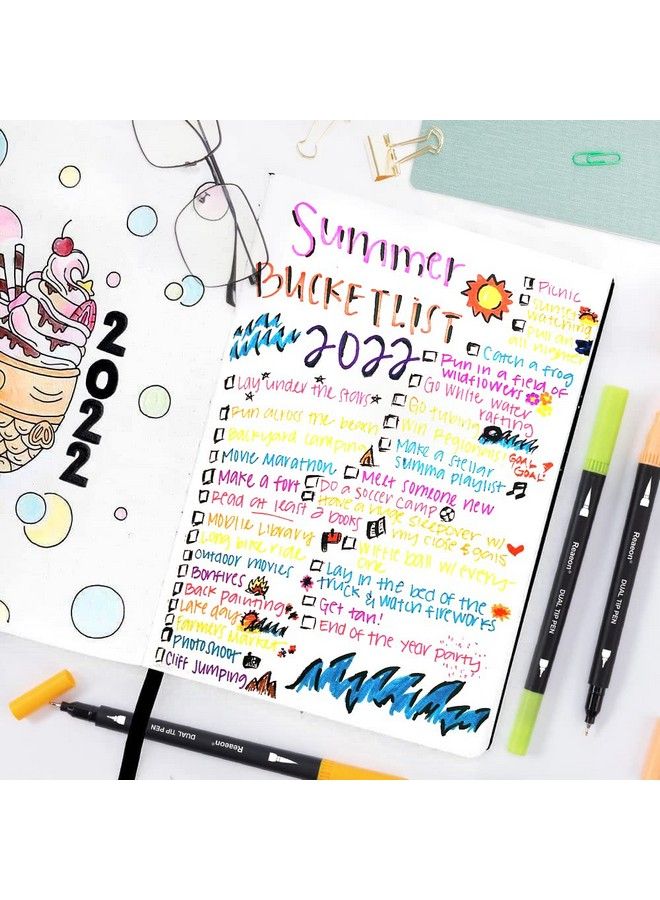 2022
Summer
BUCKETLIST
2022
Lay under the stars
Run across the beach
Backyard camping
Movie Marathon
Make a fort
Read at least 2 books
Mobile Library
Long bike ride
Outdoor movies
Bonfires
Back painting
Lake day
Farmers Market
Photoshoot
Cliff Jumping
Picnic
Sunset
watching
Pull an
all nighter
Catch a frog
Run in a field of
wildflowers
Go white water
rafting
Go tubing
Win Regionals!
GOAL
GOAL
?
Make a stellar
summa playlist
Meet someone new
Do a soccer camp
Have a huge sleepover w/
my close 6 gals
Wiffle ball w/ every-
one
Lay in the bed of the
truck & watch fireworks
Get tan!
End of the year party
Reaeon® DUAL TIP PEN
Reaeon® DUAL TIP PEN
Reaeon® DUAL TIP PEN